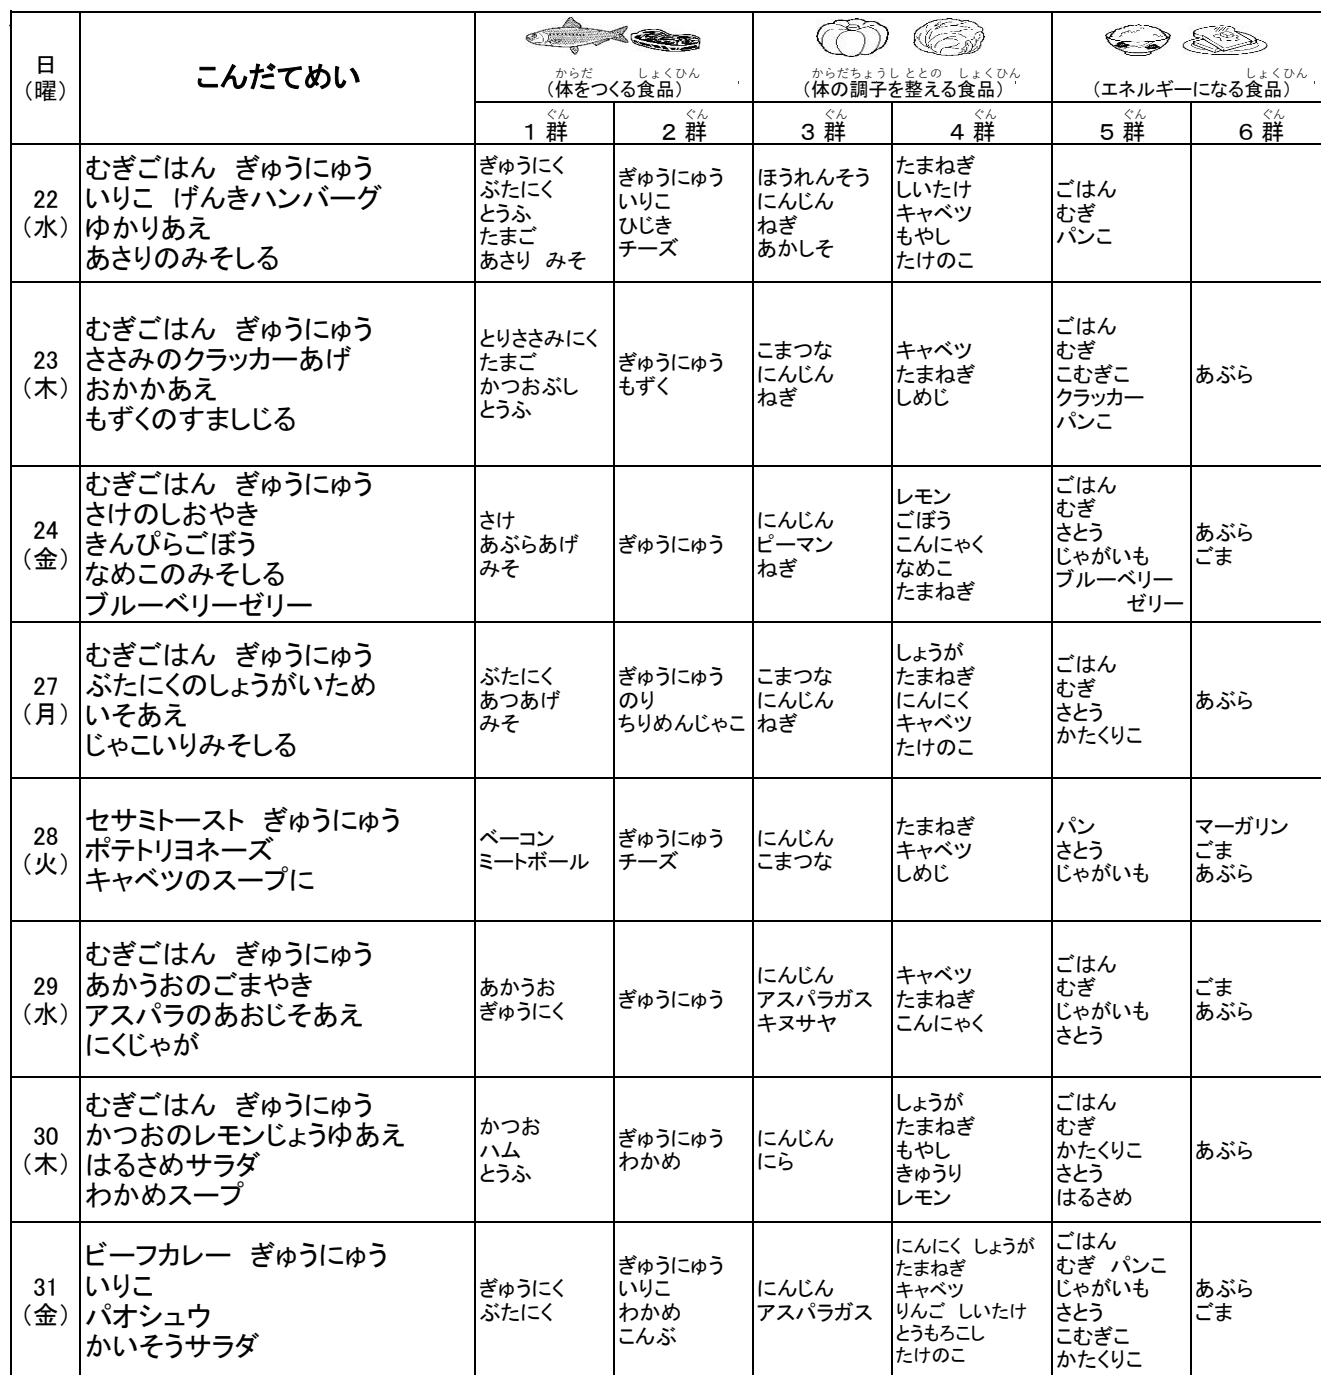 日
（曜）
こんだてめい
からだ しょくひん
（体をつくる食品）
からだちょうし ととの しょくひん
（体の調子を整える食品）
しょくひん
（エネルギーになる食品）
ぐん ぐん ぐん ぐん ぐん ぐん
１群 ２群 ３群 ４群 ５群 ６群
22
（水）
むぎごはん ぎゅうにゅう
いりこ げんきハンバーグ
ゆかりあえ
あさりのみそしる
ぎゅうにく
ぶたにく
とうふ
たまご
あさり みそ
ぎゅうにゅう
いりこ
ひじき
チーズ
ほうれんそう
にんじん
ねぎ
あかしそ
たまねぎ
しいたけ
キャベツ
もやし
たけのこ
ごはん
むぎ
パンこ
23
（木）
むぎごはん ぎゅうにゅう
ささみのクラッカーあげ
おかかあえ
もずくのすましじる
とりささみにく
たまご
かつおぶし
とうふ
ぎゅうにゅう
もずく
こまつな
にんじん
ねぎ
キャベツ
たまねぎ
しめじ
ごはん
むぎ
こむぎこ
クラッカー
パンこ
あぶら
24
（金）
むぎごはん ぎゅうにゅう
さけのしおやき
きんぴらごぼう
なめこのみそしる
ブルーベリーゼリー
さけ
あぶらあげ
みそ
ぎゅうにゅう
にんじん
ピーマン
ねぎ
レモン
ごぼう
こんにゃく
なめこ
たまねぎ
ごはん
むぎ
さとう
じゃがいも
ブルーベリー
ゼリー
あぶら
ごま
27
（月）
むぎごはん ぎゅうにゅう
ぶたにくのしょうがいため
いそあえ
じゃこいりみそしる
ぶたにく
あつあげ
みそ
ぎゅうにゅう
のり
ちりめんじゃこ
こまつな
にんじん
ねぎ
しょうが
たまねぎ
にんにく
キャベツ
たけのこ
ごはん
むぎ
さとう
かたくりこ
あぶら
28
（火）
セサミトースト ぎゅうにゅう
ポテトリヨネーズ
キャベツのスープに
ベーコン
ミートボール
ぎゅうにゅう
チーズ
にんじん
こまつな
たまねぎ
キャベツ
しめじ
パン
さとう
じゃがいも
マーガリン
ごま
あぶら
29
（水）
むぎごはん ぎゅうにゅう
あかうおのごまやき
アスパラのあおじそあえ
にくじゃが
あかうお
ぎゅうにく
ぎゅうにゅう
にんじん
アスパラガス
キヌサヤ
キャベツ
たまねぎ
こんにゃく
ごはん
むぎ
じゃがいも
さとう
ごま
あぶら
30
（木）
むぎごはん ぎゅうにゅう
かつおのレモンじょうゆあえ
はるさめサラダ
わかめスープ
かつお
ハム
とうふ
ぎゅうにゅう
わかめ
にんじん
にら
しょうが
たまねぎ
もやし
きゅうり
レモン
ごはん
むぎ
かたくりこ
さとう
はるさめ
あぶら
31
（金）
ビーフカレー ぎゅうにゅう
いりこ
パオシュウ
かいそうサラダ
ぎゅうにく
ぶたにく
ぎゅうにゅう
いりこ
わかめ
こんぶ
にんじん
アスパラガス
にんにく しょうが
たまねぎ
キャベツ
りんご しいたけ
とうもろこし
たけのこ
ごはん
むぎ パンこ
じゃがいも
さとう
こむぎこ
かたくりこ
あぶら
ごま